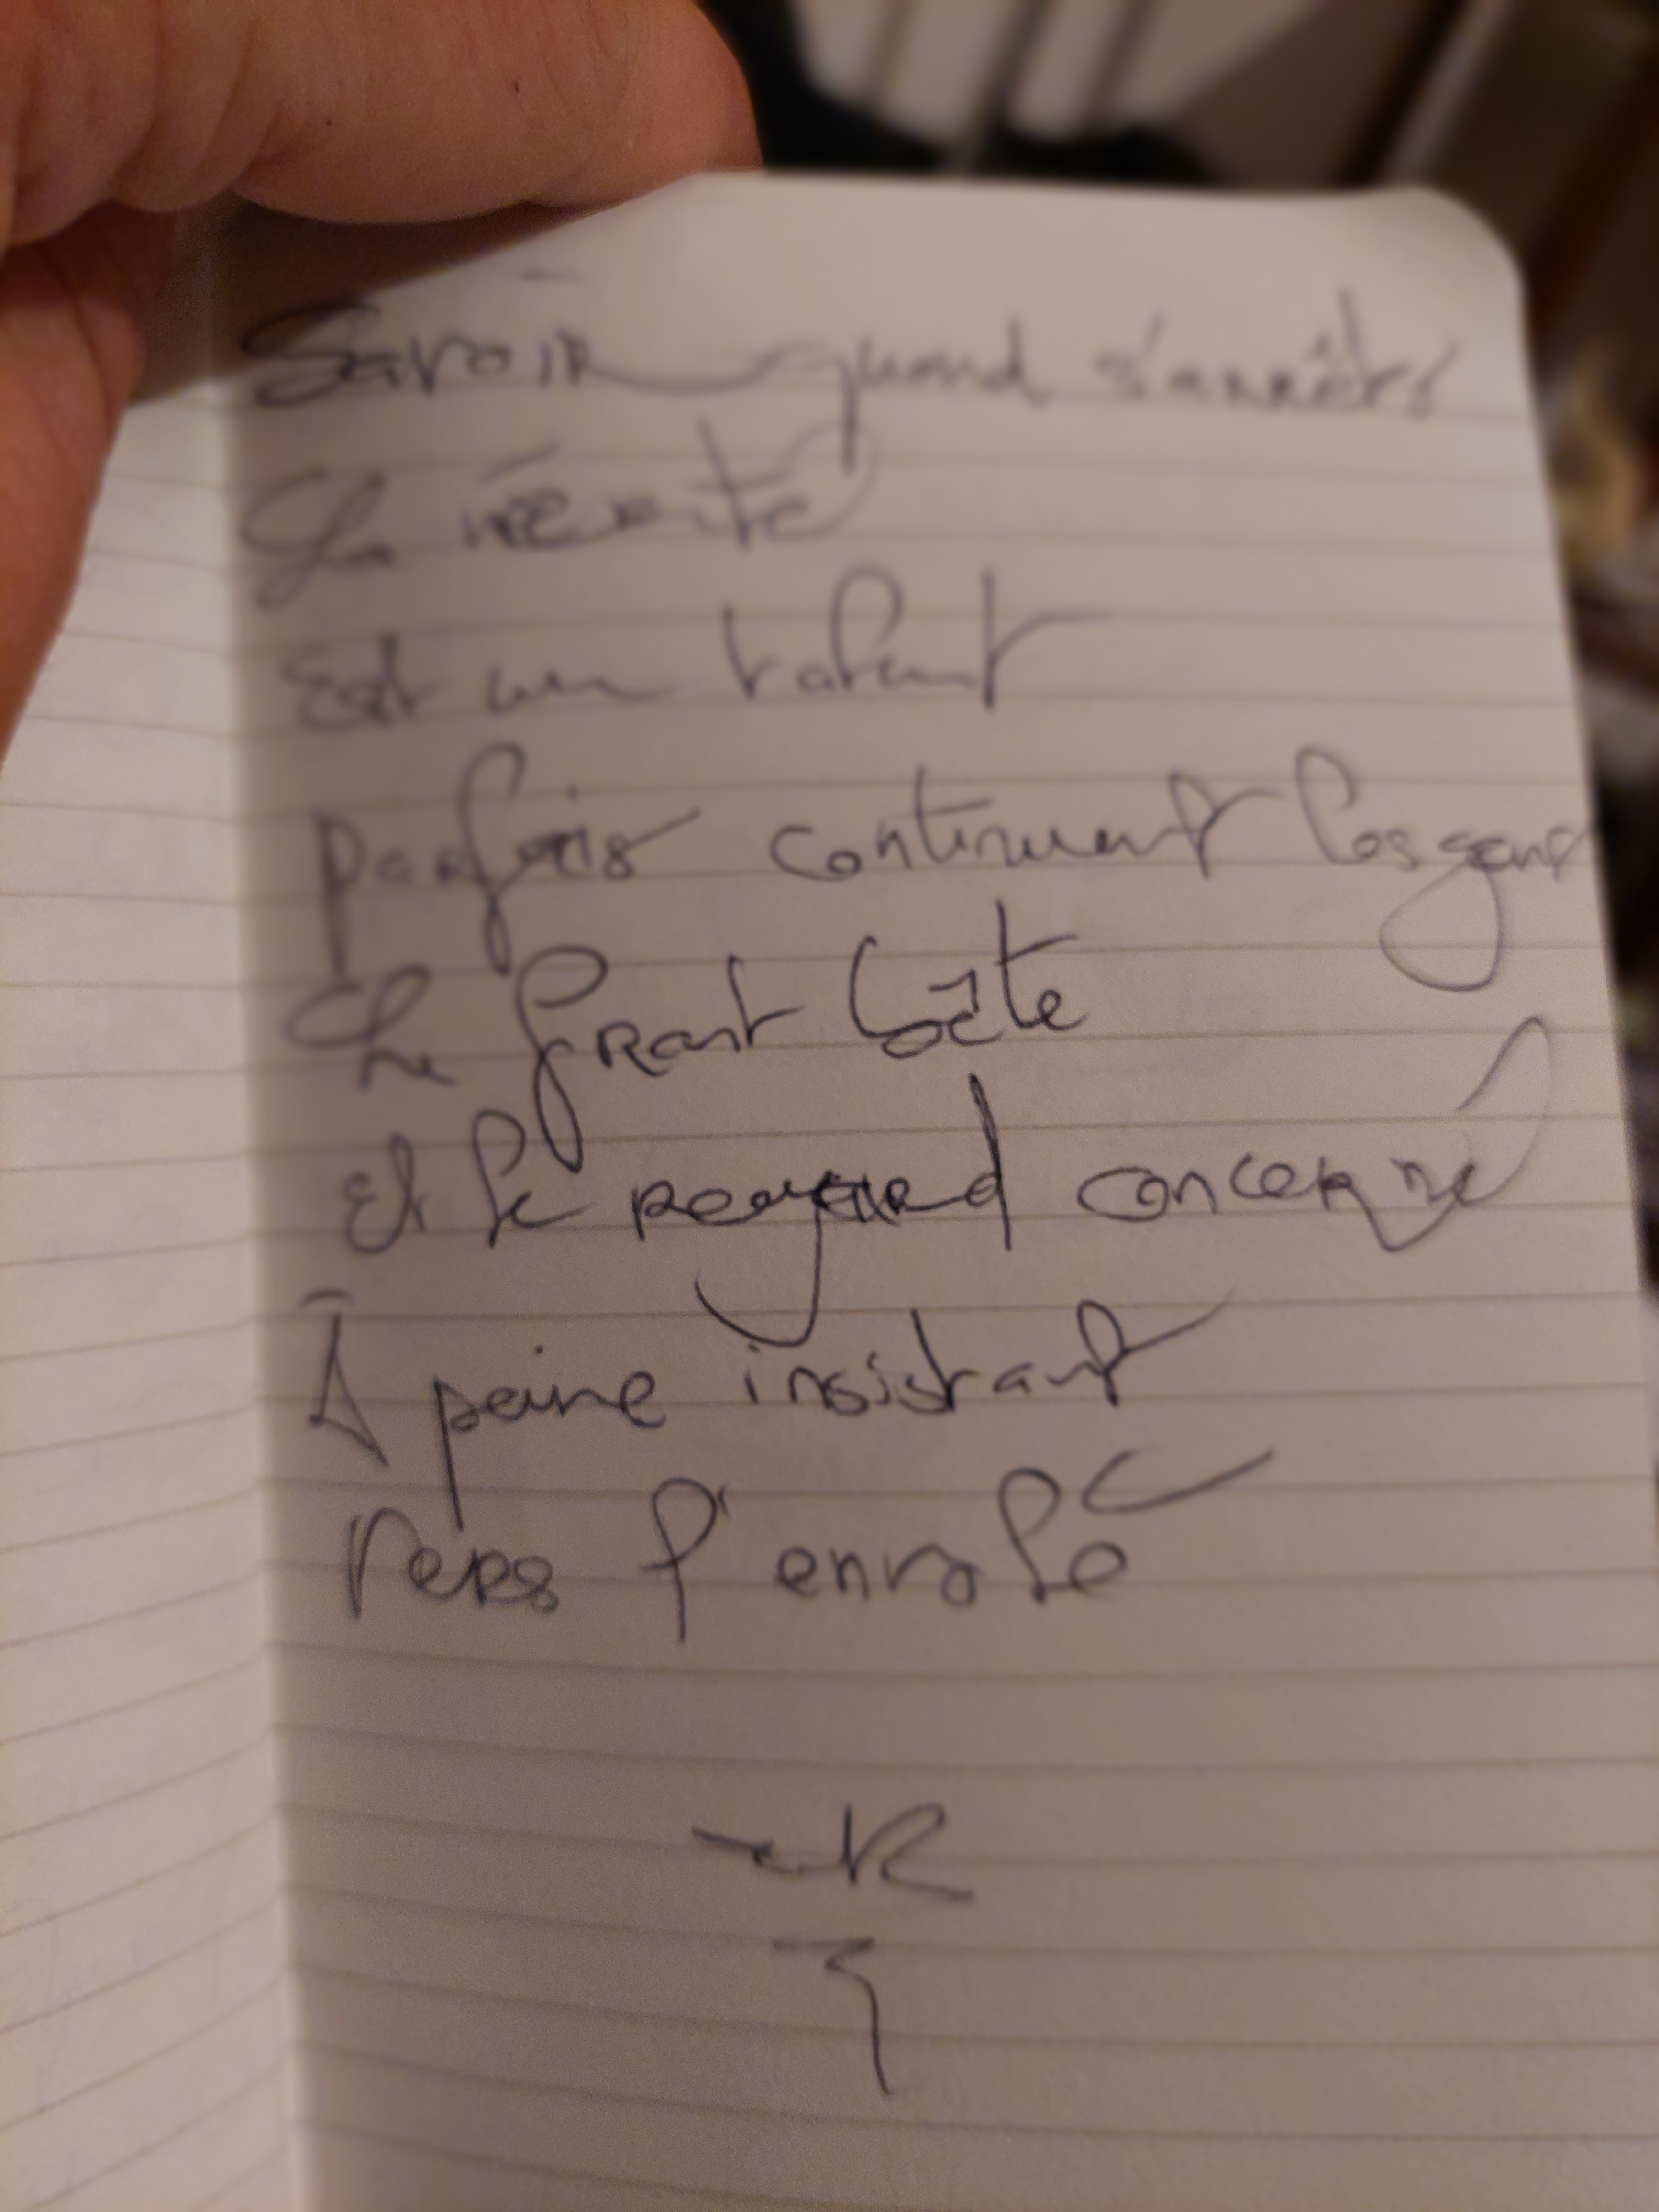 Savoir quand s'arrêter
La vérité
Est un talent
Parfois continuent les gens
Le front
Et le regard concerné
À peine insistant
Vers l'envolé